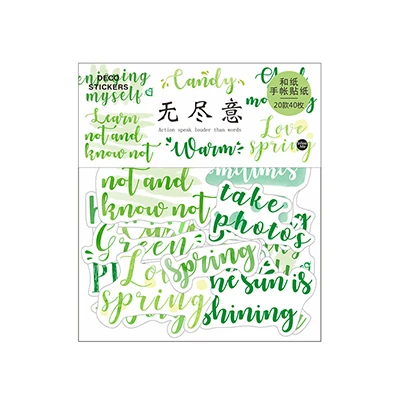 DECO
STICKERS
enjoying
myself
Candy
和纸
手帐贴纸
20款40枚
无尽意
Action speak louder than words
Learn
not and
know not
Warm
Love
spring
sometimes
not and
know not
take
photos
Green
Love
spring
spring
the sun is
shining